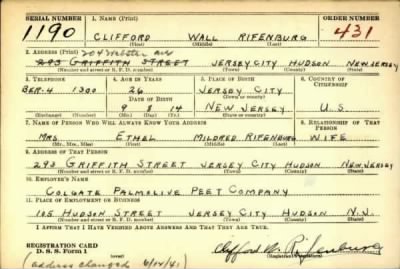 SERIAL NUMBER 1. NAME (Print) ORDER NUMBER
1190 CLIFFORD WALL RIFENBURG 431
(First) (Middle) (Last)
2. ADDRESS (Print) 204 Webster Ave
293 GRIFFITH STREET JERSEY CITY HUDSON NEW JERSEY
(Number and street or R. F. D. number) (Town) (County) (State)
3. TELEPHONE 4. AGE IN YEARS 5. PLACE OF BIRTH 6. COUNTRY OF CITIZENSHIP
26 JERSEY CITY
DATE OF BIRTH (Town or county)
BER-4 1300 9 8 14 NEW JERSEY U.S.
(Exchange) (Number) (Mo.) (Day) (Yr.) (State or country)
7. NAME OF PERSON WHO WILL ALWAYS KNOW YOUR ADDRESS 8. RELATIONSHIP OF THAT PERSON
MRS. ETHEL MILDRED RIFENBURG WIFE
(Mr., Mrs., Miss) (First) (Middle) (Last)
9. ADDRESS OF THAT PERSON
293 GRIFFITH STREET JERSEY CITY HUDSON NEW JERSEY
(Number and street or R. F. D. number) (Town) (County) (State)
10. EMPLOYER'S NAME
COLGATE PALMOLIVE PEET COMPANY
11. PLACE OF EMPLOYMENT OR BUSINESS
105 HUDSON STREET JERSEY CITY HUDSON N.J.
(Number and street or R. F. D. number) (Town) (County) (State)
I AFFIRM THAT I HAVE VERIFIED ABOVE ANSWERS AND THAT THEY ARE TRUE.
REGISTRATION CARD
D. S. S. Form 1 Clifford W. Rifenburg
(address changed 6/12/41) (Registrant's signature)